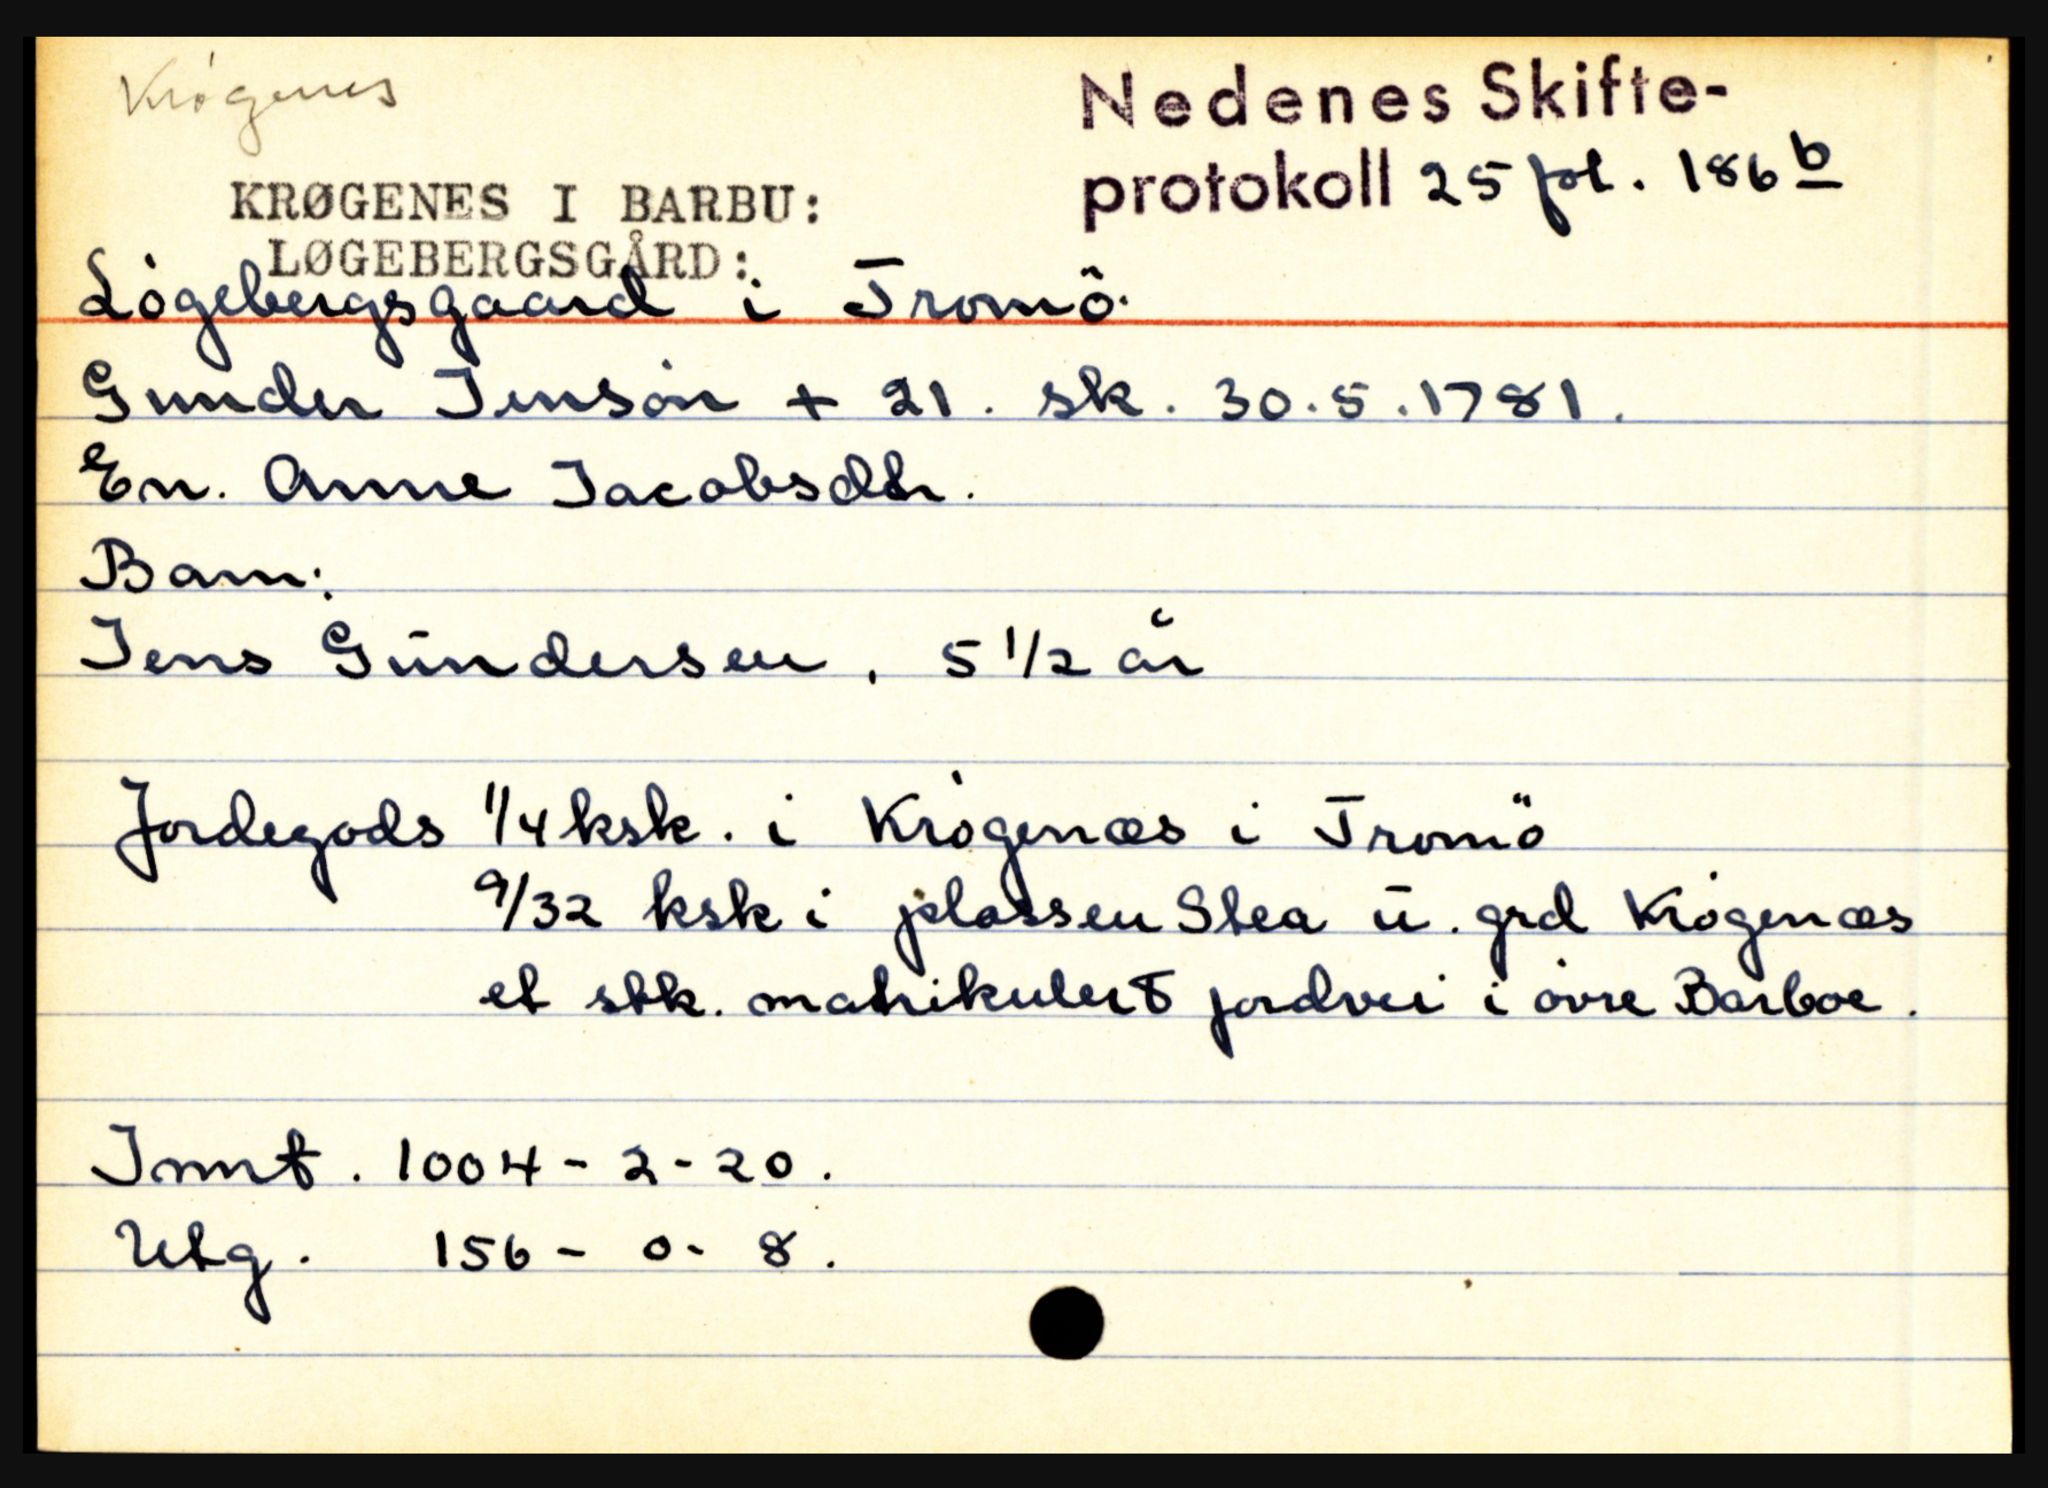 Krøgenes
Nedenes Skifte-
protokoll 25 fol. 186 b
KRØGENES I BARBU:
LØGEBERGSGÅRD:
Lögebergsgaard i Tromö.
Gunder Jensön + 21. sk. 30.5.1781.
En. Anne Jacobsdtr.
Barn:
Jens Gundersen, 5 1/2 år
Jordegods 1/4 ksk. i Krögenæs i Tromö
9/32 ksk i plassen Stea u. grd Krögenæs
et stk. matrikulert jordvei i övre Barboe.
Innt. 1004 - 2 - 20.
Utg. 156 - 0 - 8.